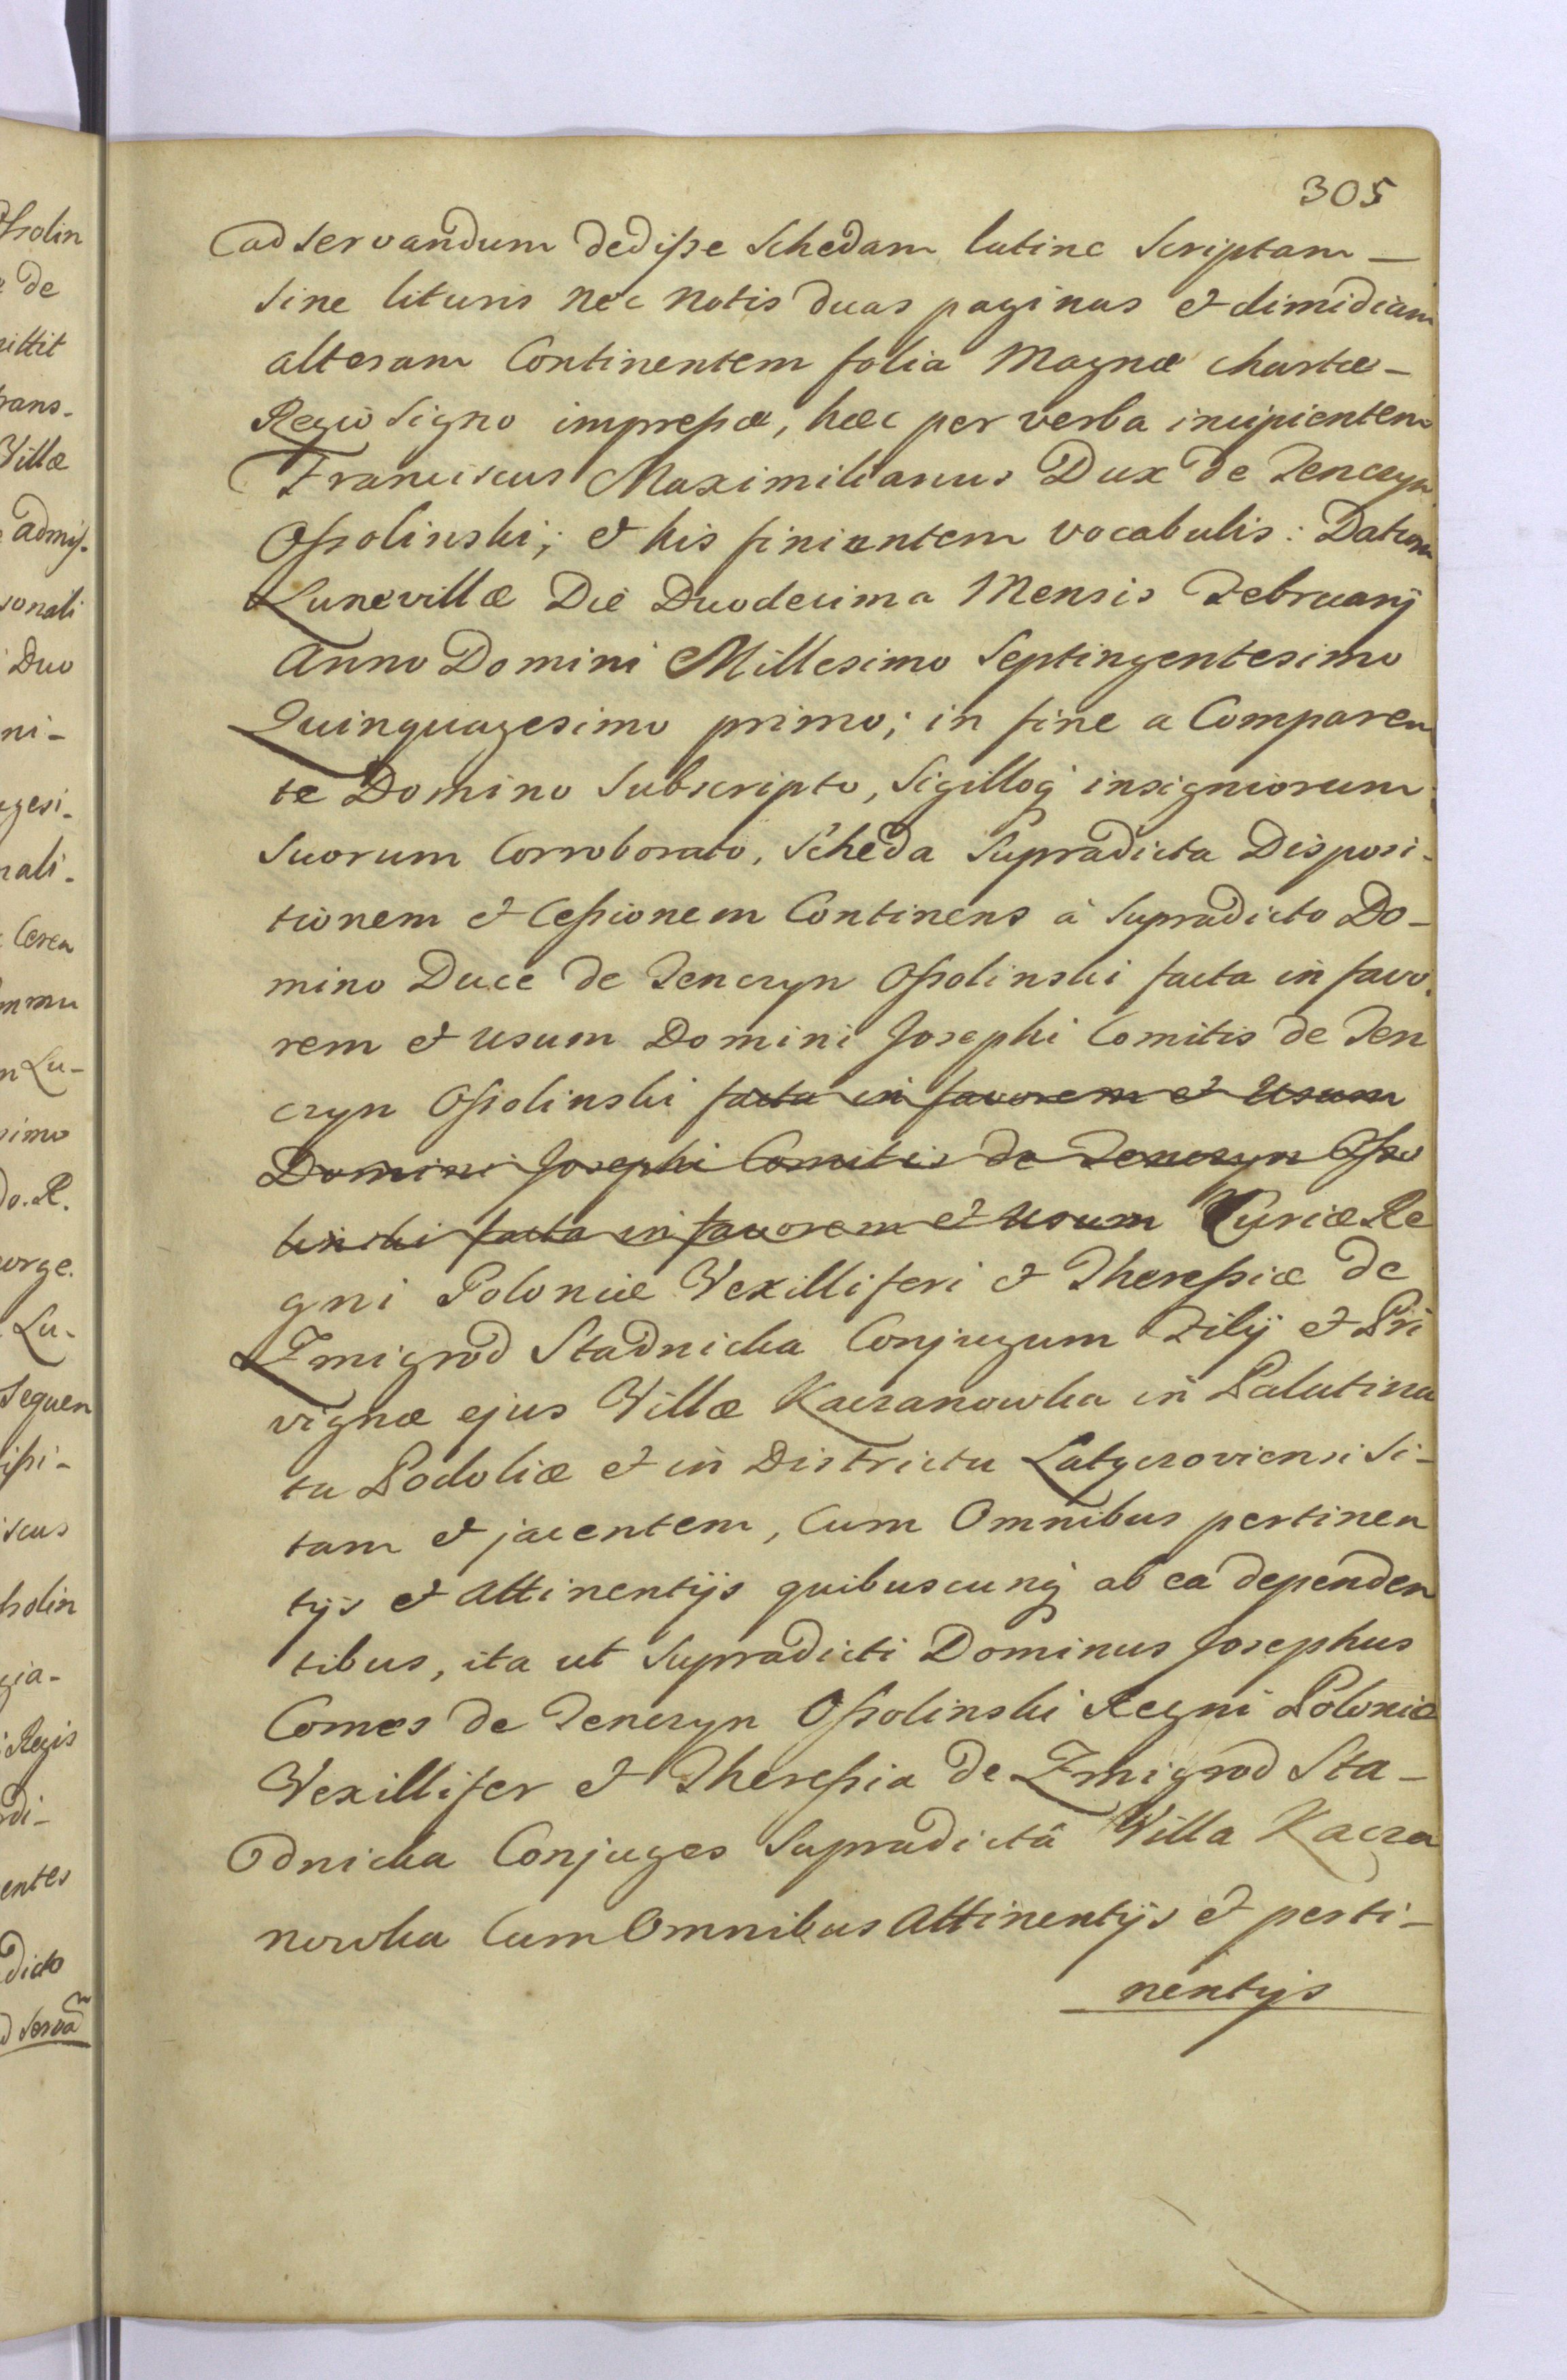 305
adservandum dedisse Schedam latine Scriptam _
Sine lituris nec notis duas paginas et dimidiam
alteram Continentem folia Magnæ chartæ _
Regio Signo impressæ, hæc per verba incipientem
Franciscus Maximilianus Dux de Tenczyn
Ossolinski; et his finiantem vocabulis: Datum
Lunevillæ Die Duodecima Mensis Februarij
Anno Domini Millesimo Septingentesimo
Quinquagesimo primo; in fine a Comparen
te Domino Subscripto, Sigilloq insigniorum
Suorum Corroborato, Scheda Supradicta Disposi-
tionem et Cessionem Continens à Supradicto Do-
mino Duce de Tenczyn Ossolinski facta in favo.
rem et usum Domini Josephi Comitis de Ten
czyn Ossolinski facta in favorem et Usum
Domini Josephi Comitis de Tenczyn Osso
linski facta in favorem et Usum Curiæ Re
gni Poloniæ Vexilliferi et Theressiæ de
Zmigrod Stadnicka Conjugum Filij et Pri
vignæ ejus Villæ Kaczanowka in Palatina
tu Podoliæ et in Districtu Latyczoviensi Si-
tam et jacentem, Cum Omnibus pertinen
tijs et Attinentijs quibuscunq ab ea dependen
tibus, ita ut Supradicti Dominus Josephus
Comes de Tenczyn Ossolinski Regni Poloniæ
Vexillifer et Theressia de Zmigrod Sta-
dnicka Conjuges Supradictâ Villa Kacza
nowka Cum Omnibus Attinentijs et perti-
nentijs